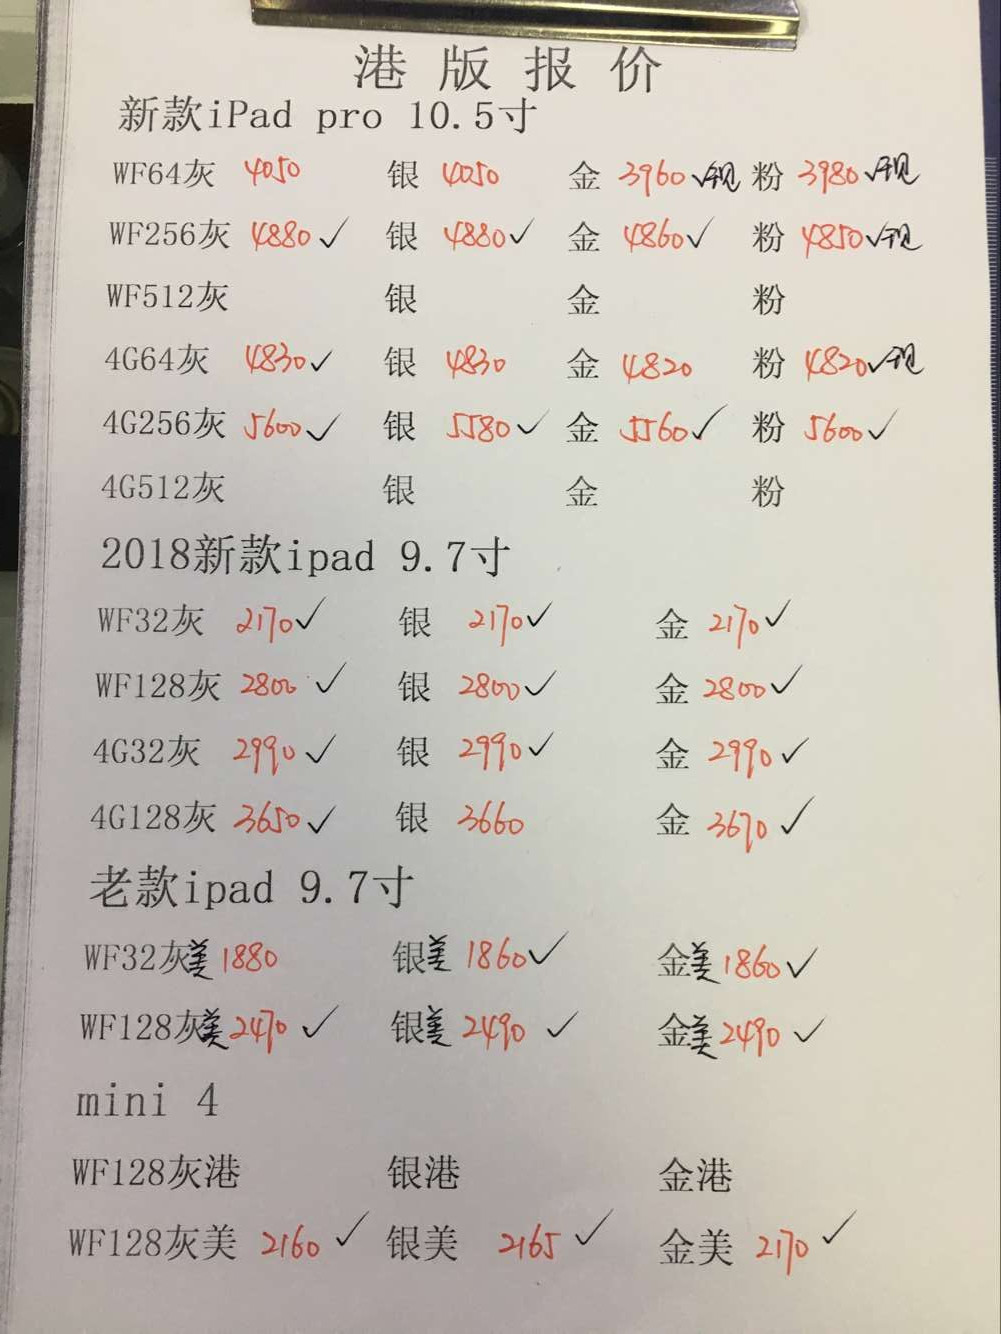 港版报价
新款iPad pro 10.5寸
WF64灰 4050 银 4050 金 3960✓现 粉 3980✓现
WF256灰 4880✓ 银 4880✓ 金 4860✓ 粉 4850✓现
WF512灰 银 金 粉
4G64灰 4830✓ 银 4830 金 4820 粉 4820✓现
4G256灰 5600✓ 银 5580✓ 金 5560✓ 粉 5600✓
4G512灰 银 金 粉
2018新款ipad 9.7寸
WF32灰 2170✓ 银 2170✓ 金 2170✓
WF128灰 2800✓ 银 2800✓ 金 2800✓
4G32灰 2990✓ 银 2990✓ 金 2990✓
4G128灰 3650✓ 银 3660 金 3670✓
老款ipad 9.7寸
WF32灰美 1880 银美 1860✓ 金美 1860✓
WF128灰美 2470✓ 银美 2490✓ 金美 2490✓
mini 4
WF128灰港 银港 金港
WF128灰美 2160✓ 银美 2165✓ 金美 2170✓